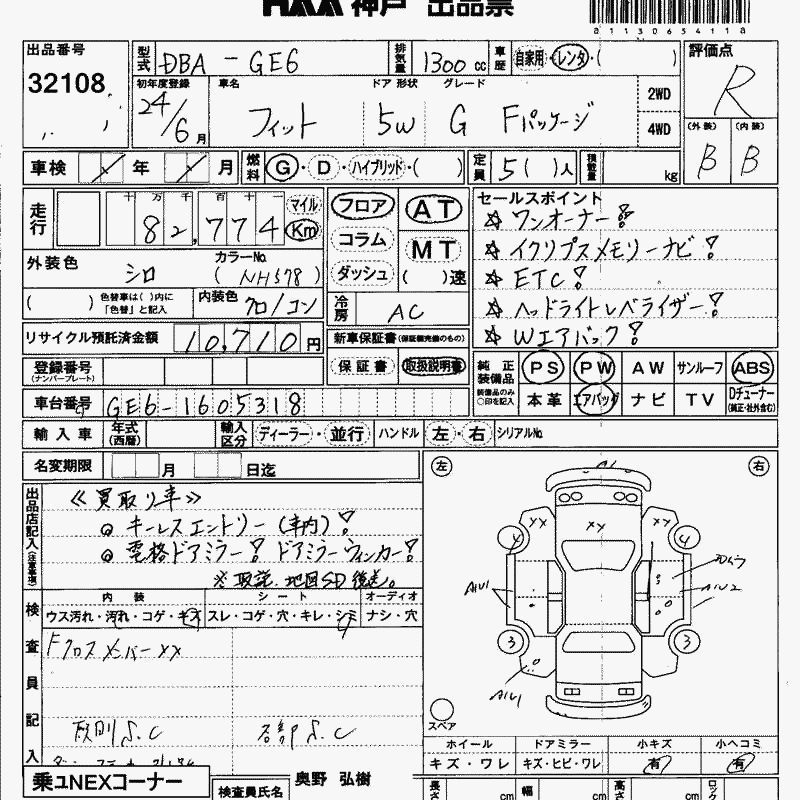 HAA 神戸 出品票
a11306541 18a
出品番号 型式 DBA - GE6 排気量 1300 cc 車歴 自家用・レンタ・( ) 評価点
32108 初年度登録 車名 ドア 形状 グレード 2WD R
24/6月 フィット 5W G Fパッケージ 4WD (外装) (内装)
車検 年 月 燃料 G・D・ハイブリッド・( ) 定員 5( )人 積載量 kg B B
走行 十 万 千 百 十 一 マイル フロア AT セールスポイント
82,774 Km コラム MT ☆ワンオーナー!
外装色 シロ カラーNo. (NH578) ダッシュ ( )速 ☆イクリプスメモリーナビ!
( ) 色替車は( )内に「色替」と記入 内装色 クロ/コン 冷房 AC ☆ETC!
☆ヘッドライトレベライザー!
リサイクル預託済金額 10,710円 新車保証書(保証継続後のもの) ☆Wエアバック!
登録番号 (ナンバープレート) 保証書 取扱説明書 純正装備品 PS PW AW サンルーフ ABS
車台番号 GE6-1605318 装備品のみ○印を記入 本革 エアバッグ ナビ TV Dチューナー (純正・社外含む)
輸入車 年式(西暦) 輸入区分 ディーラー・並行 ハンドル 左・右 シリアルNo.
名変期限 月 日迄 左 右
出品店記入(注意事項) 《買取り車》
◎キーレスエントリー(車内)!
◎電格ドアミラー! ドアミラーウィンカー!
※取説、地図SD後送。
検査員記入 内装 シート オーディオ
ウス汚れ・汚れ・コゲ・キズ スレ・コゲ・穴・キレ・シミ ナシ・穴
Fクロスメンバーxx
下廻りS.C 各部S.C
xx xx xx
4 4
A1U1 A1U2
3 3
A1U1
スペア
ホイール ドアミラー 小キズ 小ヘコミ
キズ・ワレ キズ・ヒビ・ワレ 有 有
乗ュNEXコーナー 検査員氏名 奥野 弘樹 長さ cm 幅 cm 高さ cm ロック